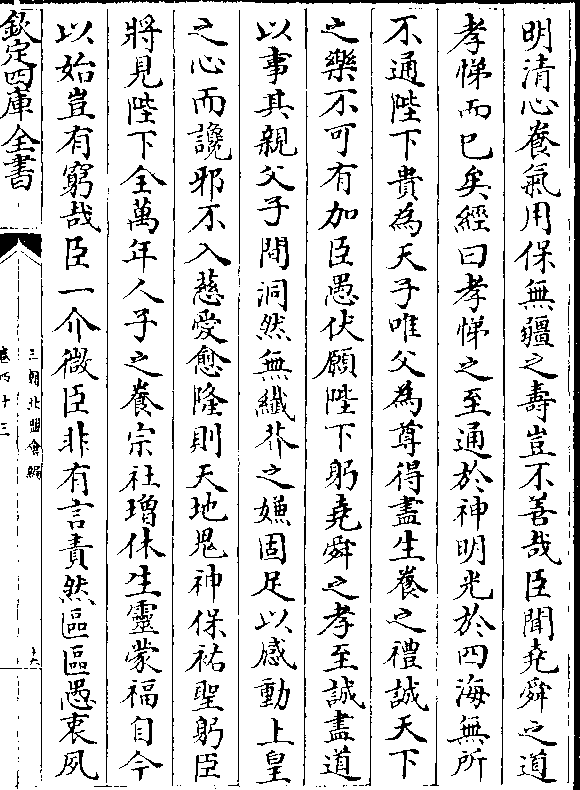 明清心養氣用保無疆之壽豈不善哉臣聞堯舜之道
孝悌而已矣經曰孝悌之至通於神明光於四海無所
不通陛下貴為天子唯父為尊得盡生養之禮誠天下
之樂不可有加臣愚伏願陛下躬堯舜之孝至誠盡道
以事其親父子間洞然無纖芥之嫌固足以感動上皇
之心而讒邪不入慈愛愈隆則天地鬼神保祐聖躬臣
將見陛下全萬年人子之養宗社增休生靈蒙福自今
以始豈有窮哉臣一介微臣非有言責然區區愚衷夙
欽定四庫全書
三朝北盟會編
卷四十三
十六